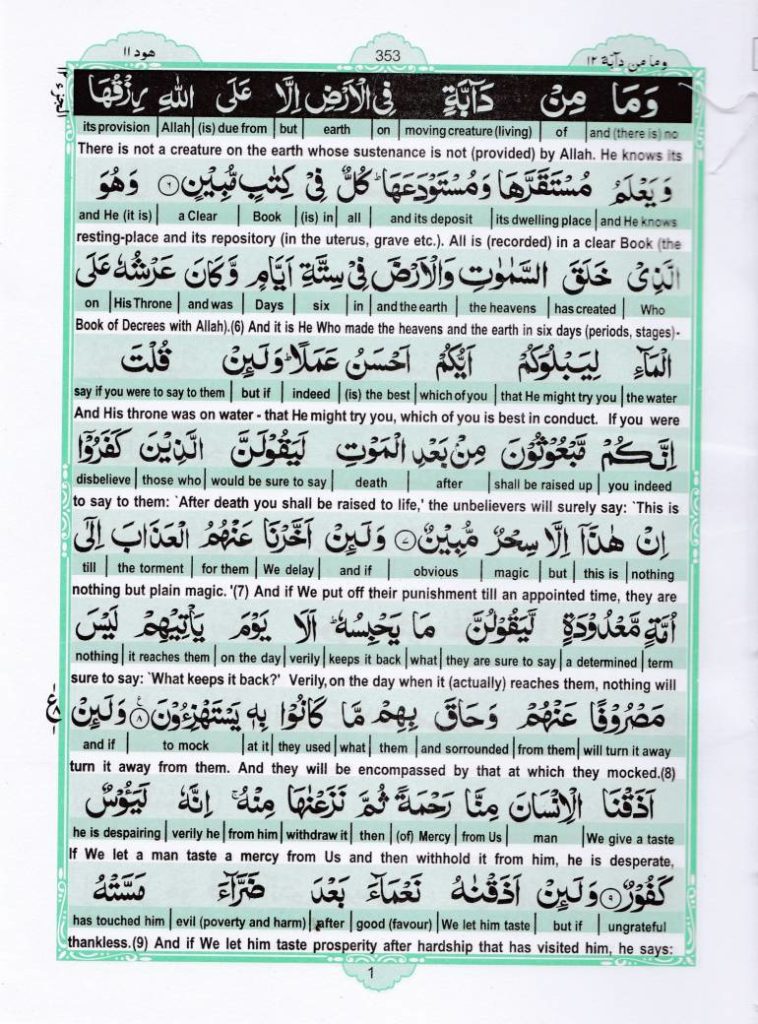 وما من دآبة ١٢
353
هود ١١
وَمَا مِنْ دَآبَّةٍ فِي الْاَرْضِ اِلَّا عَلَى اللّٰهِ رِزْقُهَا
its provision | Allah | (is) due from | but | earth | on | moving creature (living) | of | and (there is) no
There is not a creature on the earth whose sustenance is not (provided) by Allah. He knows its
وَيَعْلَمُ مُسْتَقَرَّهَا وَمُسْتَوْدَعَهَا ؕ كُلٌّ فِيْ كِتٰبٍ مُّبِيْنٍ ۝٦ وَهُوَ
and He (it is) | a Clear | Book | (is) in | all | and its deposit | its dwelling place | and He knows
resting-place and its repository (in the uterus, grave etc.). All is (recorded) in a clear Book (the
الَّذِيْ خَلَقَ السَّمٰوٰتِ وَالْاَرْضَ فِيْ سِتَّةِ اَيَّامٍ وَّكَانَ عَرْشُهٗ عَلَى
on | His Throne | and was | Days | six | in | and the earth | the heavens | has created | Who
Book of Decrees with Allah).(6) And it is He Who made the heavens and the earth in six days (periods, stages)-
الْمَآءِ لِيَبْلُوَكُمْ اَيُّكُمْ اَحْسَنُ عَمَلًا ؕ وَلَئِنْ قُلْتَ
say if you were to say to them | but if | indeed | (is) the best | which of you | that He might try you | the water
And His throne was on water - that He might try you, which of you is best in conduct. If you were
اِنَّكُمْ مَّبْعُوْثُوْنَ مِنْۢ بَعْدِ الْمَوْتِ لَيَقُوْلَنَّ الَّذِيْنَ كَفَرُوْٓا
disbelieve | those who | would be sure to say | death | after | shall be raised up | you indeed
to say to them: `After death you shall be raised to life,' the unbelievers will surely say: `This is
اِنْ هٰذَآ اِلَّا سِحْرٌ مُّبِيْنٌ ۝٧ وَلَئِنْ اَخَّرْنَا عَنْهُمُ الْعَذَابَ اِلٰٓى
till | the torment | for them | We delay | and if | obvious | magic | but | this is | nothing
nothing but plain magic. '(7) And if We put off their punishment till an appointed time, they are
اُمَّةٍ مَّعْدُوْدَةٍ لَّيَقُوْلُنَّ مَا يَحْبِسُهٗ ؕ اَلَا يَوْمَ يَاْتِيْهِمْ لَيْسَ
nothing | it reaches them | on the day | verily | keeps it back | what | they are sure to say | a determined | term
sure to say: `What keeps it back?' Verily, on the day when it (actually) reaches them, nothing will
مَصْرُوْفًا عَنْهُمْ وَحَاقَ بِهِمْ مَّا كَانُوْا بِهٖ يَسْتَهْزِءُوْنَ ۝٨ وَلَئِنْ
and if | to mock | at it | they used | what | them | and sorrounded | from them | will turn it away
turn it away from them. And they will be encompassed by that at which they mocked.(8)
اَذَقْنَا الْاِنْسَانَ مِنَّا رَحْمَةً ثُمَّ نَزَعْنٰهَا مِنْهُ ۚ اِنَّهٗ لَيَـُٔوْسٌ
he is despairing | verily he | from him | withdraw it | then | (of) Mercy | from Us | man | We give a taste
If We let a man taste a mercy from Us and then withhold it from him, he is desperate,
كَفُوْرٌ ۝٩ وَلَئِنْ اَذَقْنٰهُ نَعْمَآءَ بَعْدَ ضَرَّآءَ مَسَّتْهُ
has touched him | evil (poverty and harm) | after | good (favour) | We let him taste | but if | ungrateful
thankless.(9) And if We let him taste prosperity after hardship that has visited him, he says:
1